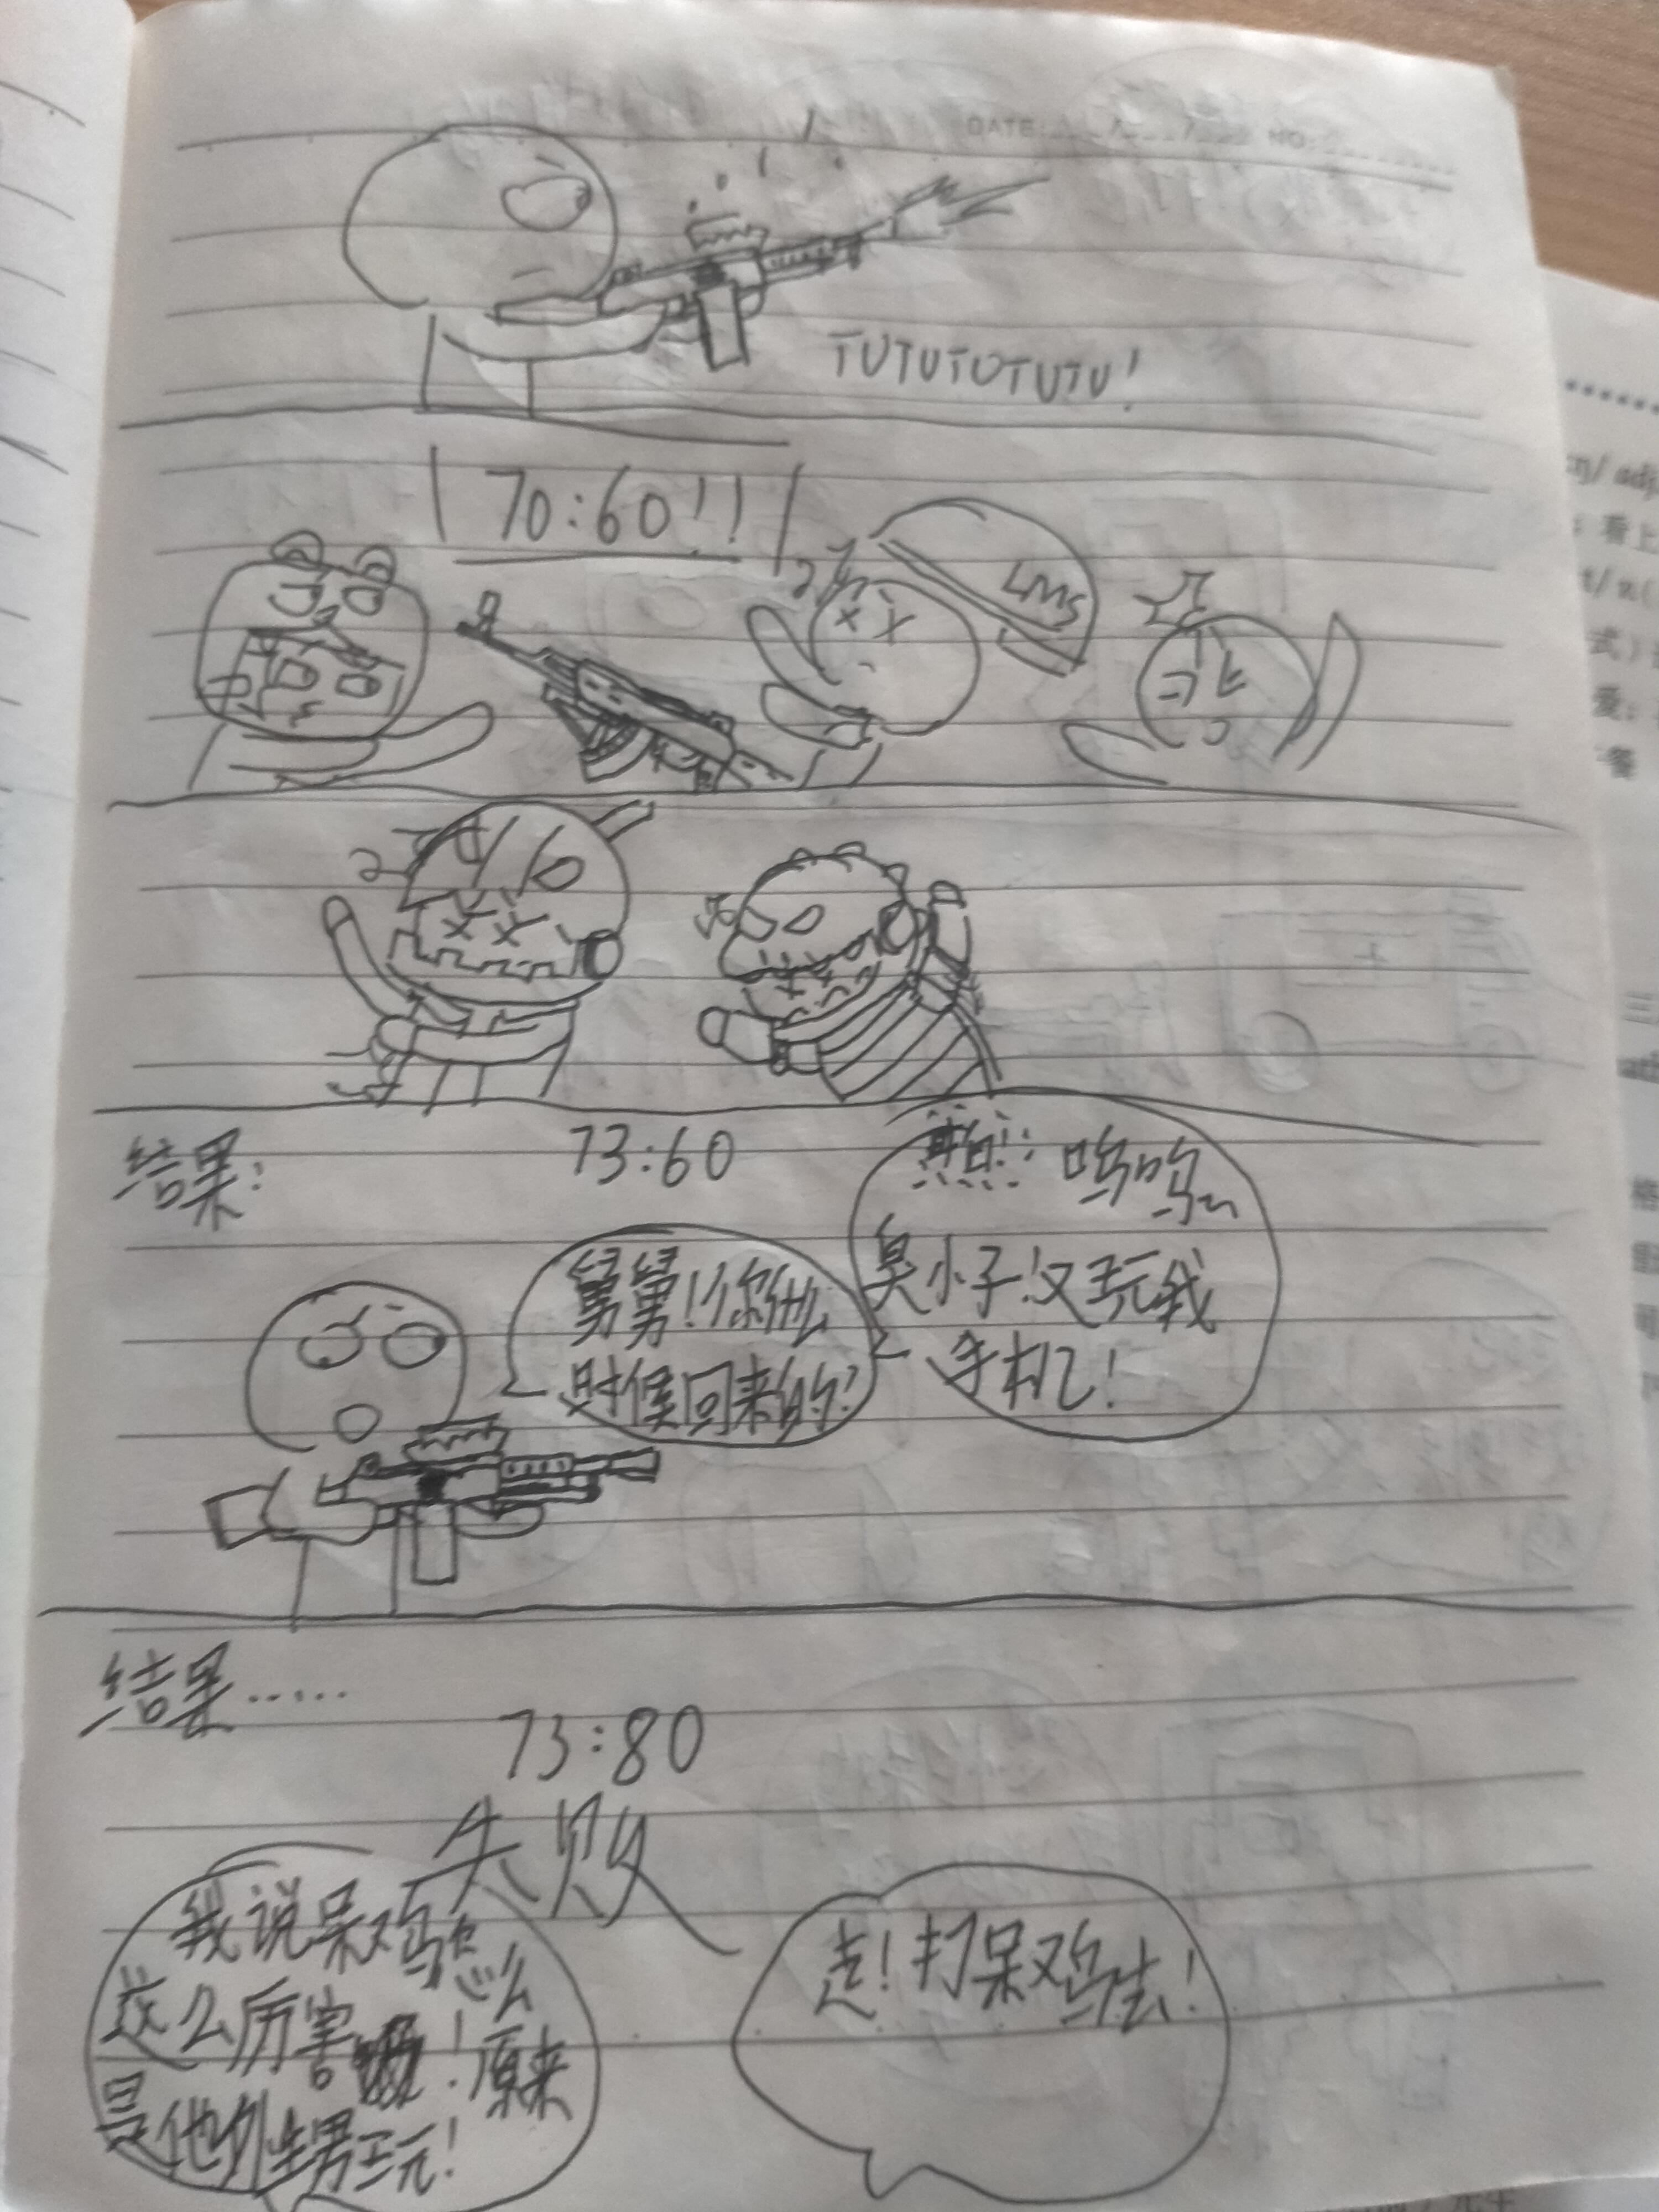 DATE: / / NO:
TUTUTUTUTU!
70:60!!
LMS
结果:
73:60
呜呜
臭小子!又玩我
手机!
舅舅!你什么
时候回来的?
结果……
73:80
失败
我说呆鸡怎么
这么厉害!原来
是他外生男玩!
走!打呆鸡去!